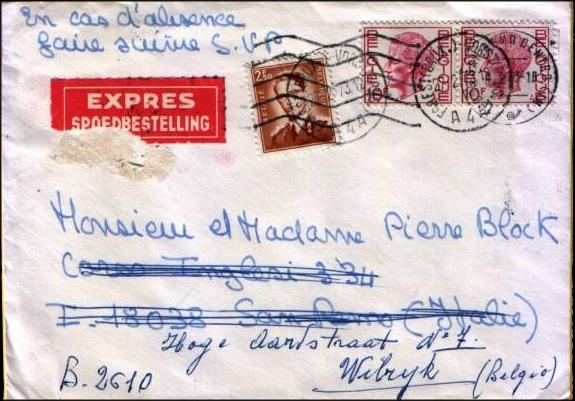 En cas d'absence
faire suivre S.V.P
EXPRES
SPOEDBESTELLING
2,50
10F
10F
A 4
4 A
Monsieur et Madame Pierre Block
Corso Inglesi 334
I. 18038 San Remo (Italie)
Hoge Aardstraat nº 7.
B. 2610 Wilryk (Belgio)